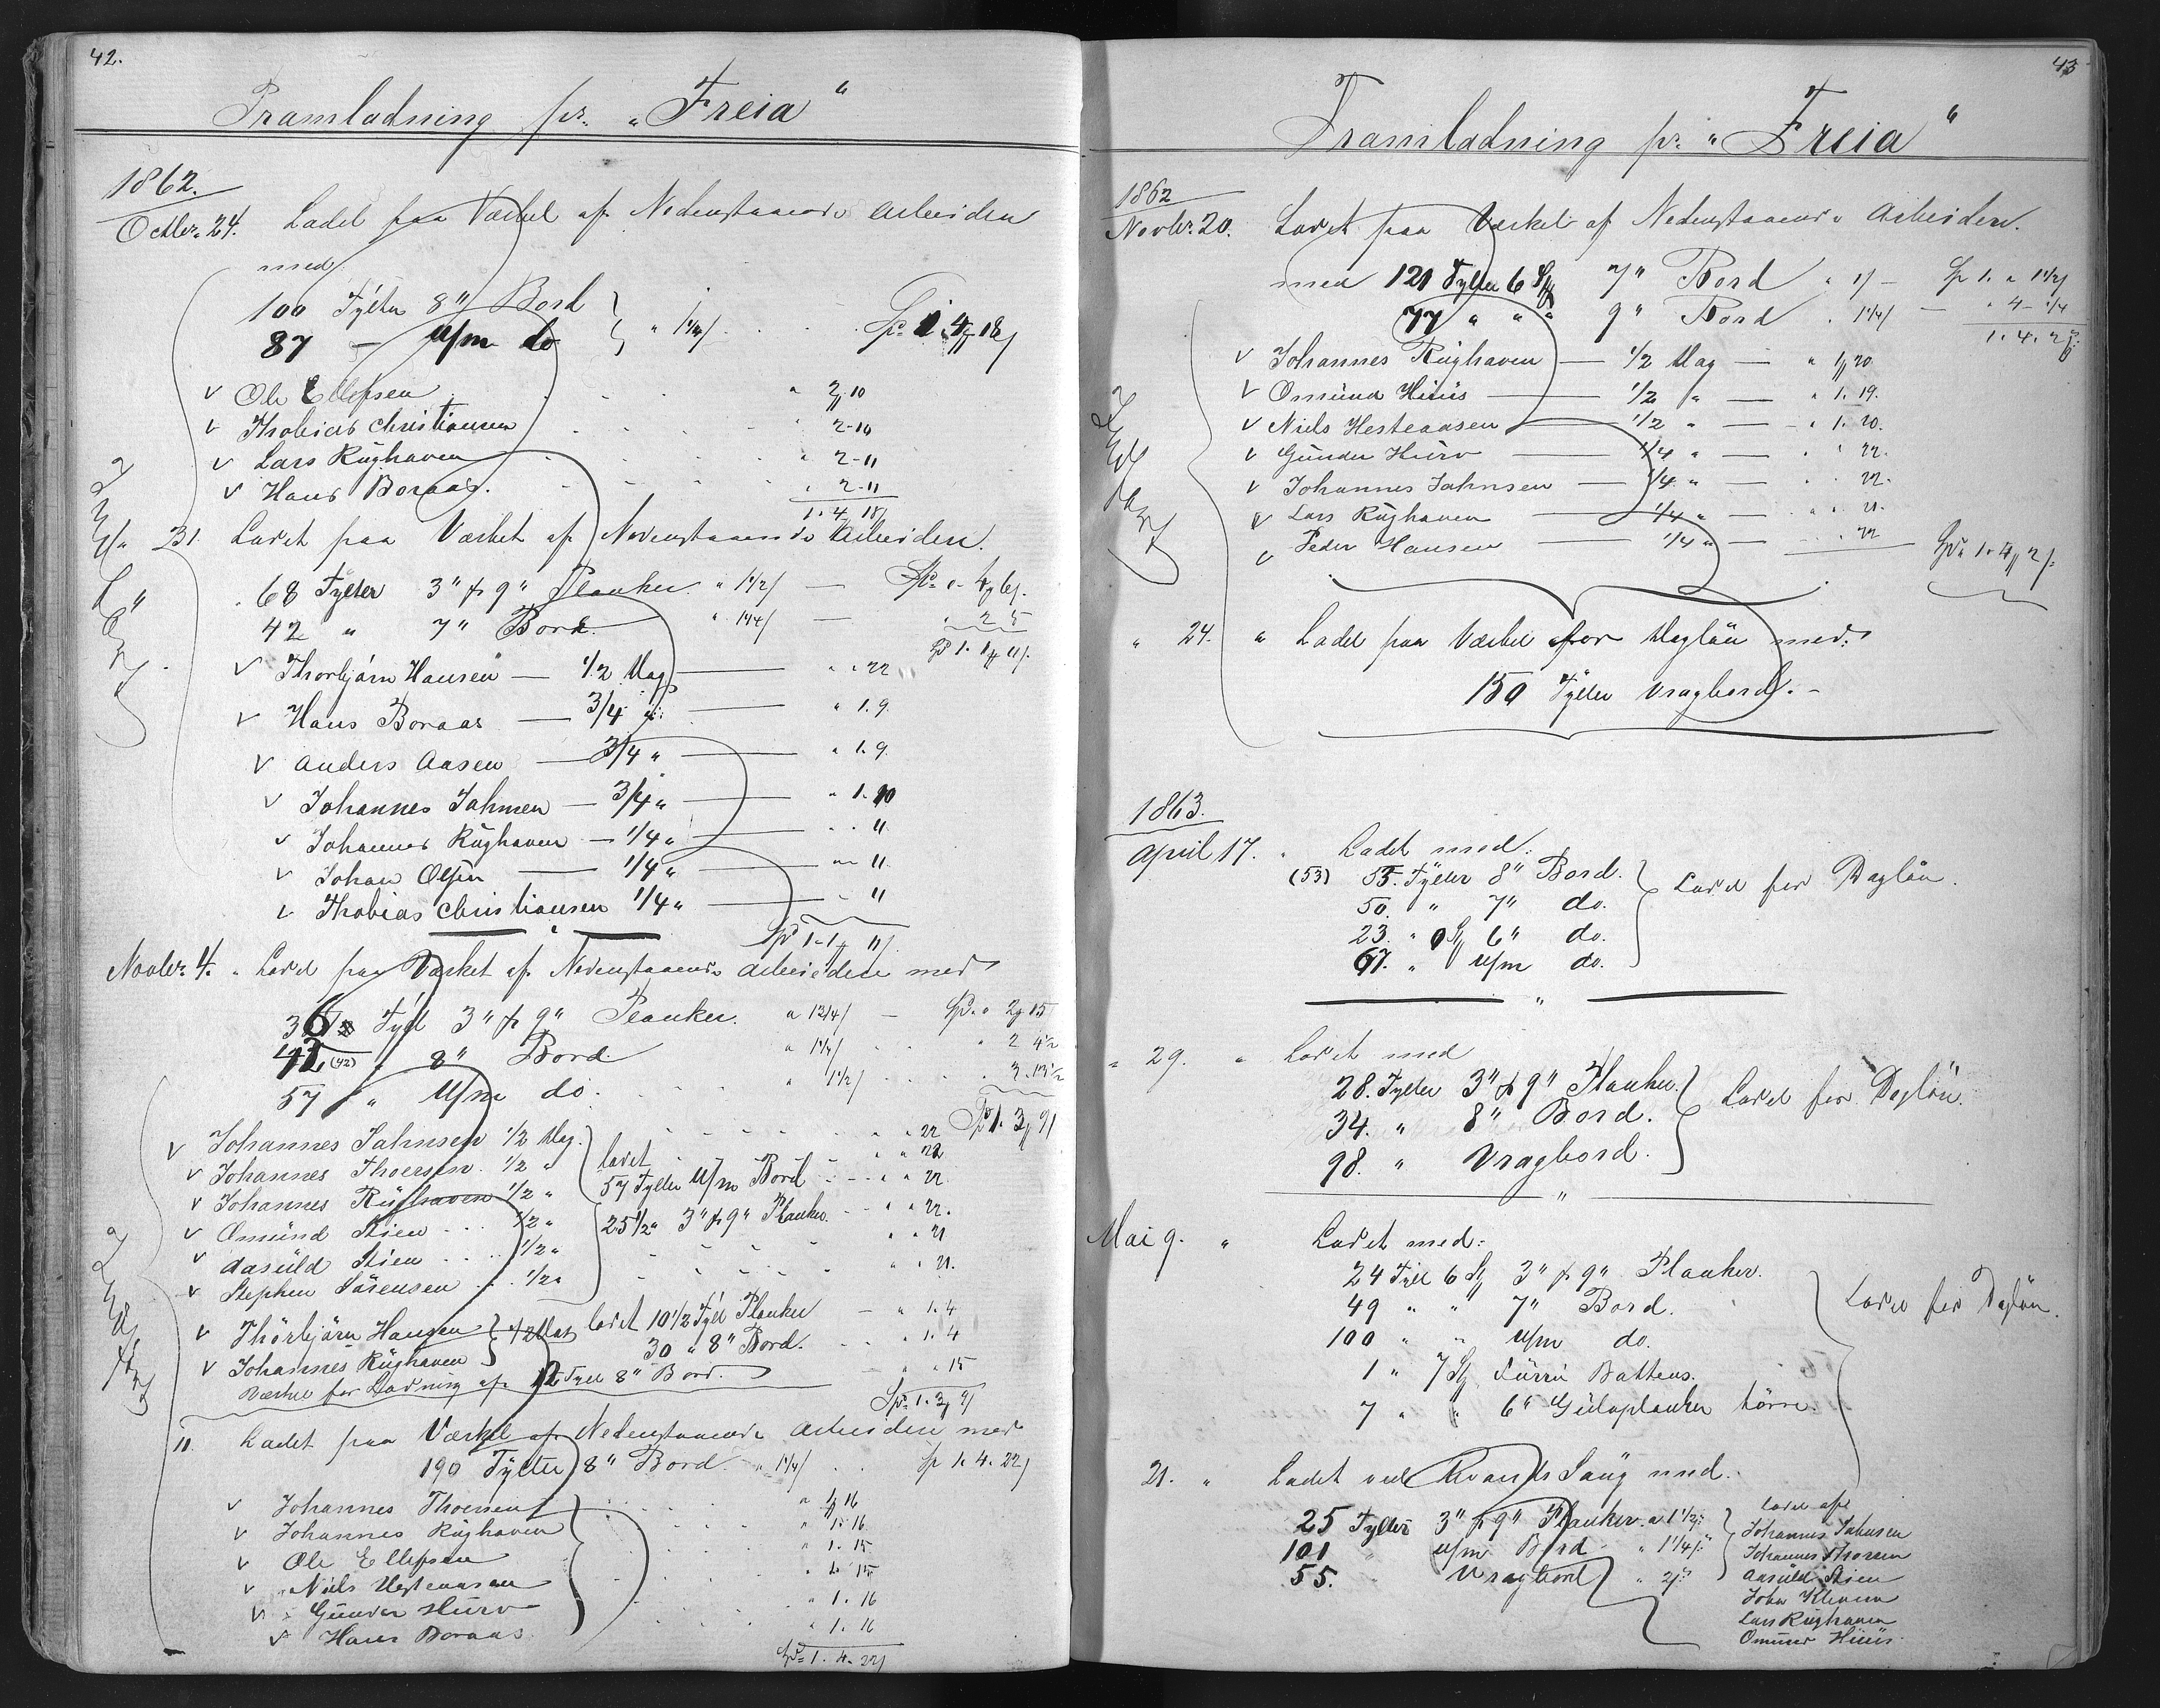 42.
Pramladning pr. "Freia"
1862.
Octbr. 24. Ladet paa Værket af Nedenstaaende Arbeidere
med
100 Tylter 8" Bord
87 — u/m do " 1 1/4/ Spd 1. 4 18/
v Ole Ellefsen " 2. 10
v Thobias Christiansen " 2-10
v Lars Rüghaven " 2-11
v Hans Boraas. " 2-11
1. 4 18/
31. Ladet paa Værket af Nedenstaaende Arbeidere.
68 Tylter 3" & 9" Planker. " 1 1/2/ — Spd " 4 6/.
42 " 7" Bord. " 1 1/4/ — " 2 5
Spd 1. 1 11/.
v Thorbjørn Hansen — 1/2 Dag — " " 22
v Hans Boraas — 3/4 " — " 1. 9.
v Anders Aasen — 3/4 " — " 1. 9.
v Johannes Jahnsen — 3/4 " — " 1. 10
v Johannes Rüghaven — 1/4 " — " " 11
v Johan Olsen — 1/4 " — " " 11.
v Thobias Christiansen 1/4 " — " " 11
Spd 1-1 11/.
Novbr. 4. " Ladet paa Værket af Nedenstaaende Arbeidere med
36 Tylt 3" & 9" Planker. a 1 3/4/ — Spd. " 2 15
42 (42) " 8" Bord. a 1 1/4/ " 2 4 1/2
57 " u/m do. " 1 1/2/ " 2. 13 1/2
Spd 1. 3 9/
v Johannes Jahnsen 1/2 Dag. " " 22
v Johannes Thoersen. 1/2 " ladet " " 22
v Johannes Rüghaven 1/2 " 57 Tylter u/m Bord " " 22
v Omünd Stien 1/2 " 25 1/2 " 3" & 9" Planker. " " 22.
v Aasüld Stien 1/2 " " " 21
v Stephen Sørensen 1/2 " " " 21.
v Thorbjørn Hansen 1/2 Dag ladet 10 1/2 Tylt Planker — " 1. 4
v Johannes Rüghaven 30 " 8" Bord. " 1. 4
Værket for Ladning af 12 Tylt 8" Bord. " " 15
Spd. 1. 3 9/
11. Ladet paa Værket af Nedenstaaende Arbeidere med
190 Tylter 8" Bord. " 1 1/4/ Sp 1. 4. 22/
v Johannes Thoersen " 1 16
v Johannes Rüghaven " 1. 16
v Ole Ellefsen " 1. 15
v Niels Hesteaasen " 1. 15
v Gunder Hürv " 1. 16
v Hans Boraas " 1. 16
Spd. 1. 4. 22/
43
Pramladning pr. "Freia"
1862
Novbr. 20. Ladet paa Værket af Nedenstaaende Arbeidere.
med 121 Tylter 6 St 7" Bord " 1/ — Sp 1. " 1 1/2/
77 " " " 9" Bord " 1 1/4/ — " 4 - 1/4
1. 4. 2
v Johannes Rüghaven — 1/2 Dag — " 1 20
v Omünd Hüüs — 1/2 " — " 1. 19.
v Niels Hesteaasen — 1/2 " — " 1. 20.
v Günder Hürv — 1/4 " — " " 22.
v Johannes Jahnsen — 1/4 " — " " 22.
v Lars Rüghaven — 1/4 " — " " 21.
v Peder Hansen — 1/4 " — " 22 Spd. 1. 4 2/.
" 24. " Ladet paa Værket for Dagløn med:
150 Tylter Vragbord. -
1863.
April 17. Ladet med:
(53) 55. Tylter 8" Bord. Ladet for Dagløn.
50. " 7" do.
23. " 9 St 6" do.
67. " u/m do.
" 29. " Ladet med
28. Tylter 3" & 9" Planker. Ladet for Dagløn.
34. " 8" Bord.
98. " Vragbord.
Mai 9. " Ladet med:
24 Tylt 6 St 3" & 9" Planker.
49 " " 7" Bord. Ladet for Dagløn.
100 " " u/m do.
1 " 7 St Fürrü Battens.
7 " " 6" Gülvplanker tørre.
21. " Ladet ved Sang med.
25 Tylter 3" & 9" Planker. a 1 1/2/: ladet af
101 " u/m Bord " 1 1/4/: Johannes Jahnsen
55. " Vragbord " 2/: Johannes Thorsen
Aasüld Stien
John Kleven
Lars Rüghaven
Omünd Hüüs.